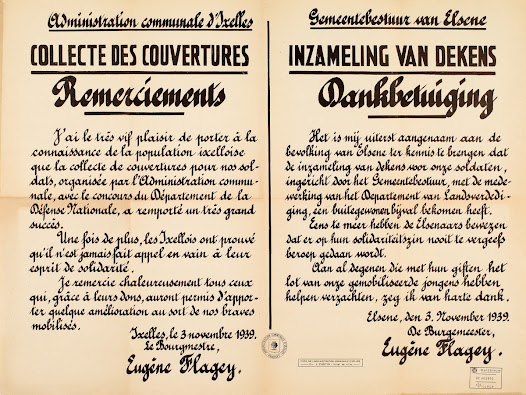 Administration communale d'Ixelles
COLLECTE DES COUVERTURES
Remerciements
J'ai le très vif plaisir de porter à la
connaissance de la population ixelloise
que la collecte de couvertures pour nos sol-
dats, organisée par l'Administration commu-
nale, avec le concours du Département de la
Défense Nationale, a remporté un très grand
succès.
Une fois de plus, les Ixellois ont prouvé
qu'il n'est jamais fait appel en vain à leur
esprit de solidarité.
Je remercie chaleureusement tous ceux
qui, grâce à leurs dons, auront permis d'appor-
ter quelque amélioration au sort de nos braves
mobilisés.
Ixelles, le 3 novembre 1939.
Le Bourgmestre,
Eugène Flagey.
Gemeentebestuur van Elsene
INZAMELING VAN DEKENS
Dankbetuiging
Het is mij uiterst aangenaam aan de
bevolking van Elsene ter kennis te brengen dat
de inzameling van dekens voor onze soldaten,
ingericht door het Gemeentebestuur, met de mede-
werking van het Departement van Landsverdedi-
ging, een buitegewonen bijval bekomen heeft.
Eens te meer hebben de Elsenaars bewezen
dat er op hun solidariteitszin nooit te vergeefs
beroep gedaan wordt.
Aan al degenen die met hun giften het
lot van onze gemobiliseerde jongens hebben
helpen verzachten, zeg ik van harte dank.
Elsene, den 3. November 1939.
De Burgemeester,
Eugène Flagey.